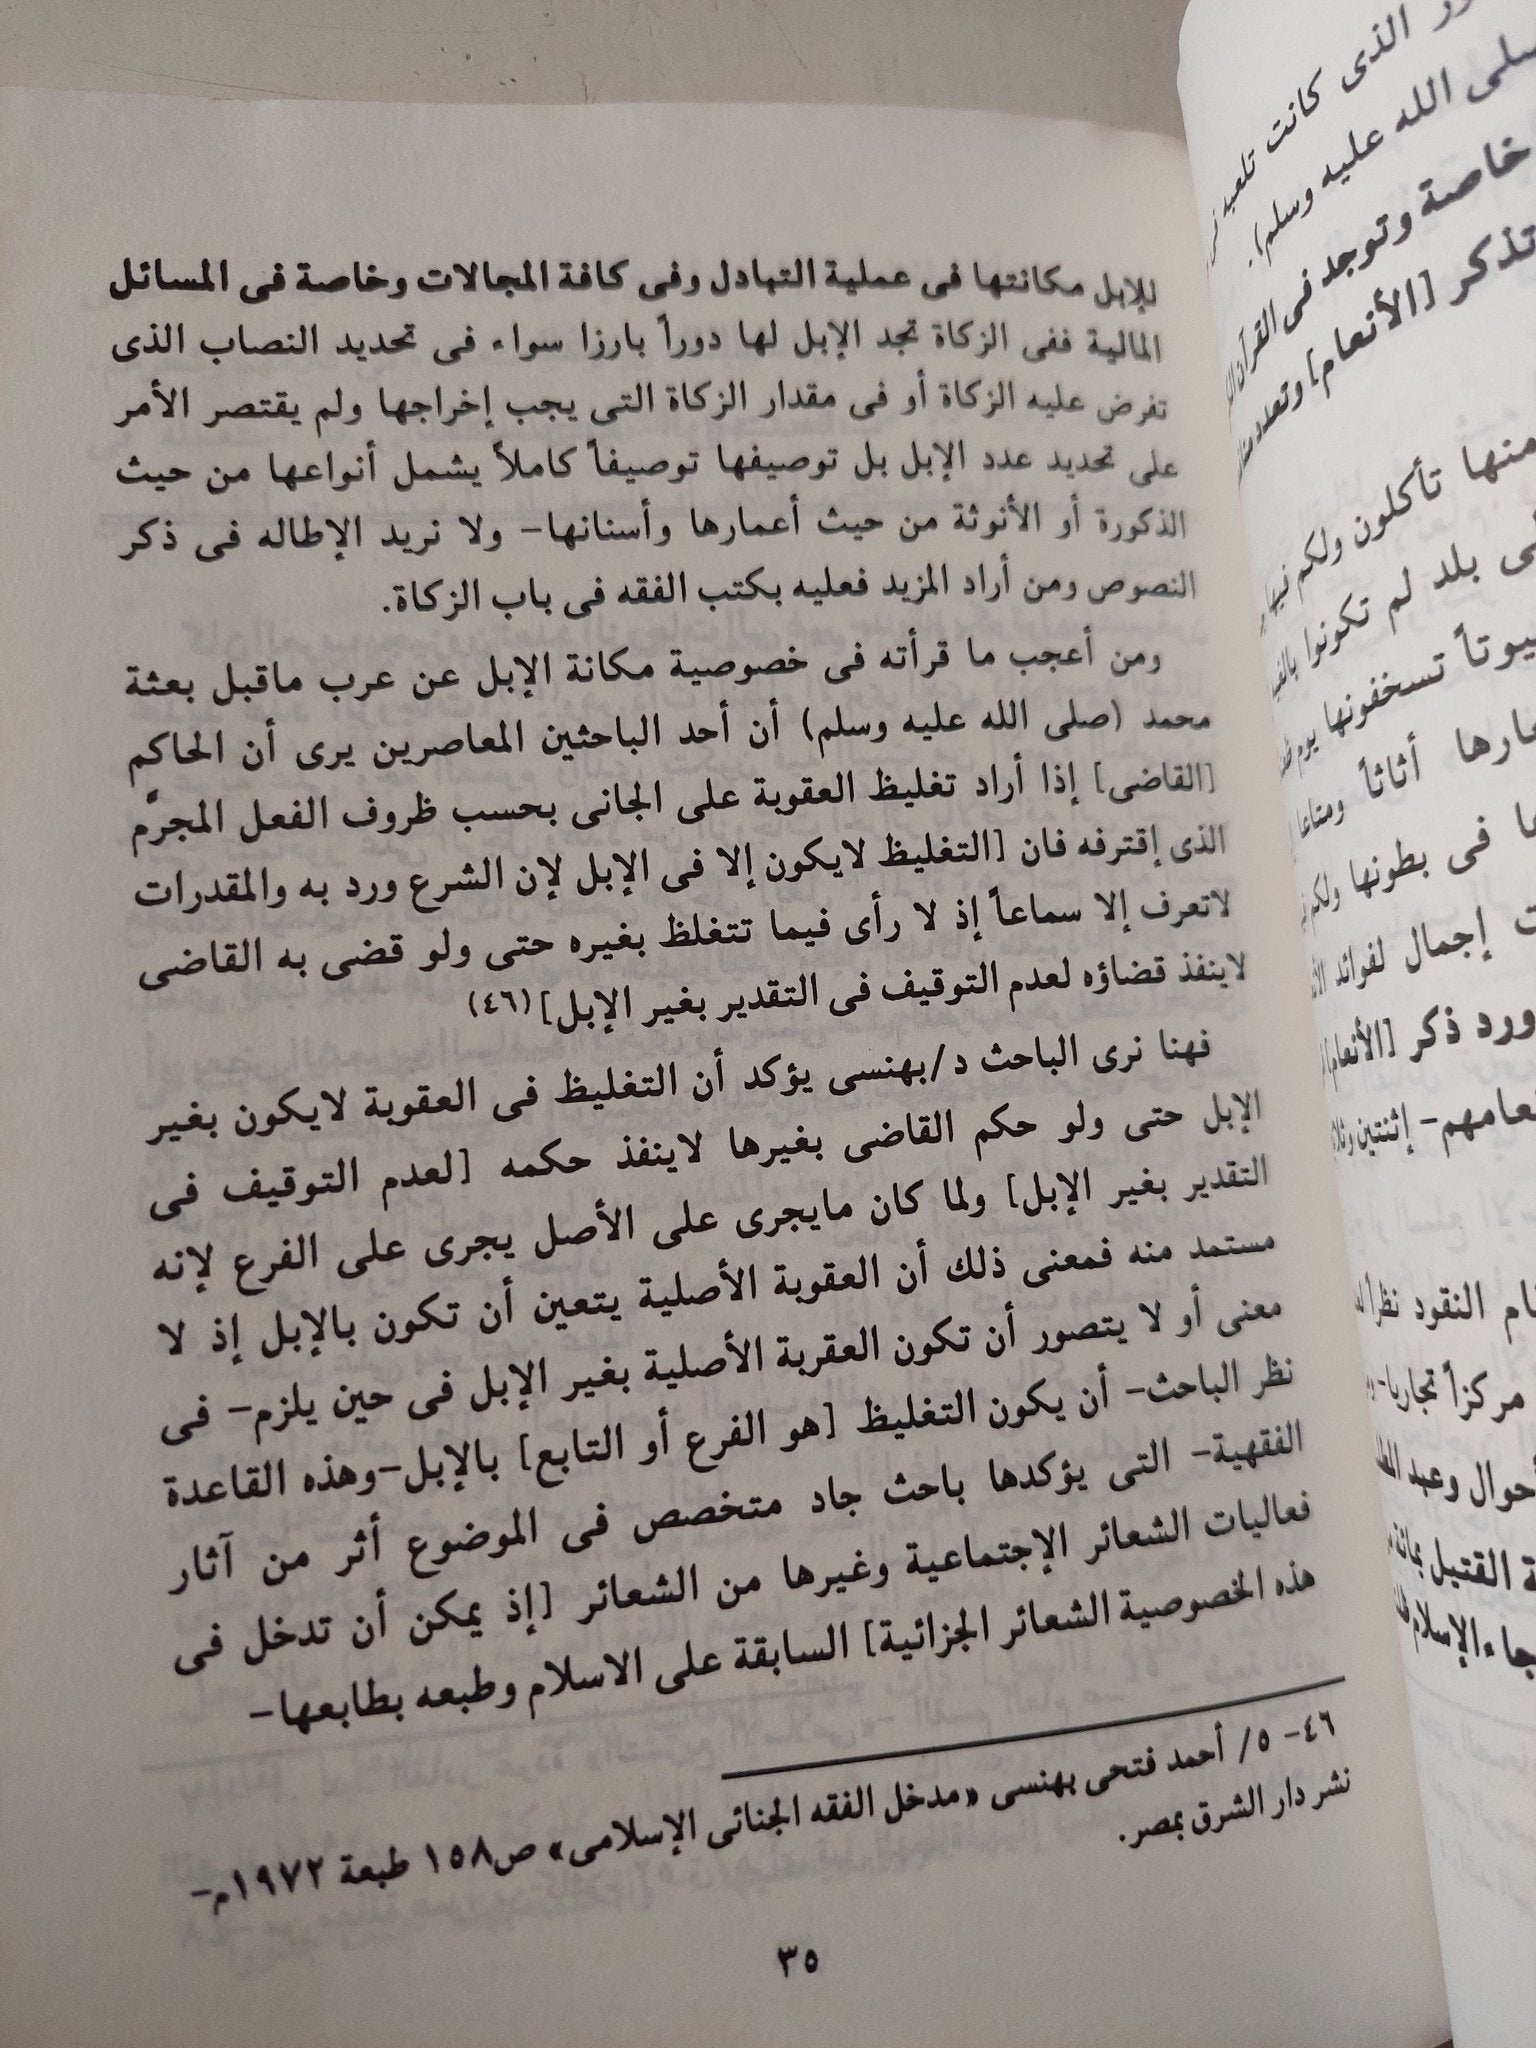 للإبل مكانتها فى عملية التبادل وفى كافة المجالات وخاصة فى المسائل
المالية ففى الزكاة تجد الإبل لها دوراً بارزا سواء فى تحديد النصاب الذى
تفرض عليه الزكاة أو فى مقدار الزكاة التى يجب إخراجها ولم يقتصر الأمر
على تحديد عدد الإبل بل توصيفها توصيفاً كاملاً يشمل أنواعها من حيث
الذكورة أو الأنوثة من حيث أعمارها وأسنانها- ولا نريد الإطاله فى ذكر
النصوص ومن أراد المزيد فعليه بكتب الفقه فى باب الزكاة.
ومن أعجب ما قرأته فى خصوصية مكانة الإبل عن عرب ماقبل بعثة
محمد (صلى الله عليه وسلم) أن أحد الباحثين المعاصرين يرى أن الحاكم
[القاضى] إذا أراد تغليظ العقوبة على الجانى بحسب ظروف الفعل المجرَّم
الذى إقترفه فان [التغليظ لايكون إلا فى الإبل لإن الشرع ورد به والمقدرات
لاتعرف إلا سماعاً إذ لا رأى فيما تتغلظ بغيره حتى ولو قضى به القاضى
لاينفذ قضاؤه لعدم التوقيف فى التقدير بغير الإبل](٤٦)
فهنا نرى الباحث د/بهنسى يؤكد أن التغليظ فى العقوبة لايكون بغير
الإبل حتى ولو حكم القاضى بغيرها لاينفذ حكمه [لعدم التوقيف فى
التقدير بغير الإبل] ولما كان مايجرى على الأصل يجرى على الفرع لإنه
مستمد منه فمعنى ذلك أن العقوبة الأصلية يتعين أن تكون بالإبل إذ لا
معنى أو لا يتصور أن تكون العقربة الأصلية بغير الإبل فى حين يلزم- فى
نظر الباحث- أن يكون التغليظ [هو الفرع أو التابع] بالإبل-وهذه القاعدة
الفقهية- التى يؤكدها باحث جاد متخصص فى الموضوع أثر من آثار
فعاليات الشعائر الإجتماعية وغيرها من الشعائر [إذ يمكن أن تدخل فى
هذه الخصوصية الشعائر الجزائية] السابقة على الاسلام وطبعه بطابعها-
٤٦- ٥/ أحمد فتحى بهنسى «مدخل الفقه الجنائى الإسلامى» ص١٥٨ طبعة ١٩٧٢م-
نشر دار الشرق بمصر.
٣٥
الذى كانت تلعبه
صلى الله عليه وسلم).
خاصة وتوجد فى القرآن
تذكر [الأنعام] وتعددت
منها تأكلون ولكم فيها
بلد لم تكونوا
تسخفونها يوم
أثاثاً ومتاعا
فى بطونها ولكم
إجمال لفوائد
ورد ذكر [الأنعام]
إثنتين
النقود نظراً
مركزاً تجاريا-
وعبد
القتيل بمائة
الإسلام